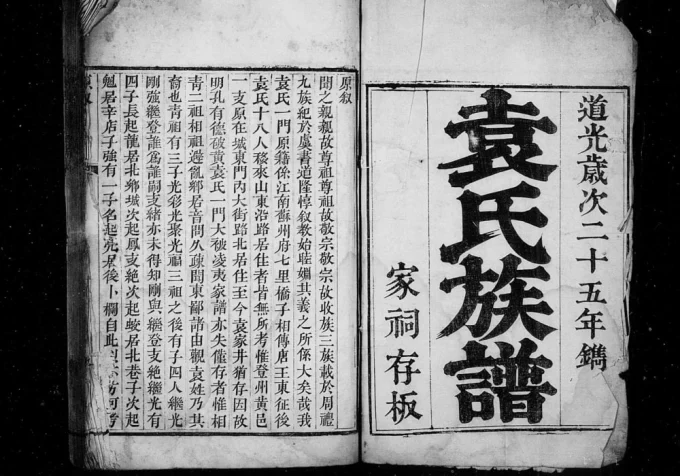 道光歲次二十五年鐫
袁氏族譜
家祠存板
原叙
聞之親親故尊祖尊祖故敬宗敬宗故收族三族載於周禮
九族紀於虞書道隆惇叙教始睦婣其義之所係大矣哉我
袁氏一門原籍係江南蘇州府七里橋子相傳唐王東征後
袁氏十八人務來山東沿路居住者皆無所考惟登州黄邑
一支原在城東門内大街路北居住至今袁家井猶存因故
明孔有德破黄袁氏一門大被凌夷家譜亦失僅存者惟相
青二祖相祖避亂鄉居音問久疎聞東鄙諸由觀袁姓乃其
裔也青祖有三子光彩光聚光福三祖之後有子四人繼光
剛強繼登誰爲誰嗣支緒亦未得知剛與繼登支絶繼光有
四子長起龍居北鄉城次起鳳支絶次起蛟居北巷子次起
魁居辛店子強有一子名起亮居後卜欄自此